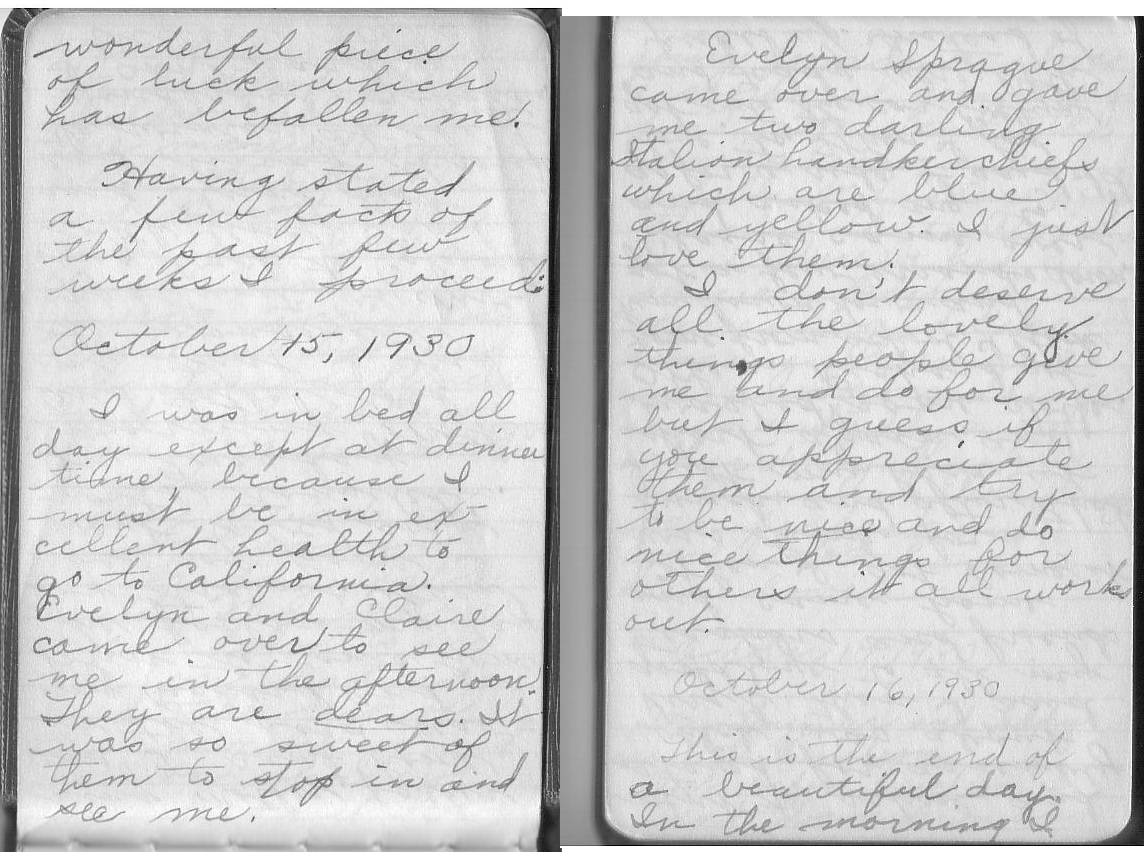 wonderful piece
of luck which
has befallen me.
Having stated
a few facts of
the past few
weeks I proceed:
October 15, 1930
I was in bed all
day except at dinner
time, because I
must be in ex-
cellent health to
go to California.
Evelyn and Claire
came over to see
me in the afternoon.
They are dears. It
was so sweet of
them to stop in and
see me.
Evelyn Sprague
came over and gave
me two darling
Italian handkerchiefs
which are blue
and yellow. I just
love them.
I don't deserve
all the lovely
things people give
me and do for me
but I guess if
you appreciate
them and try
to be nice and do
nice things for
others it all works
out.
October 16, 1930
This is the end of
a beautiful day.
In the morning I